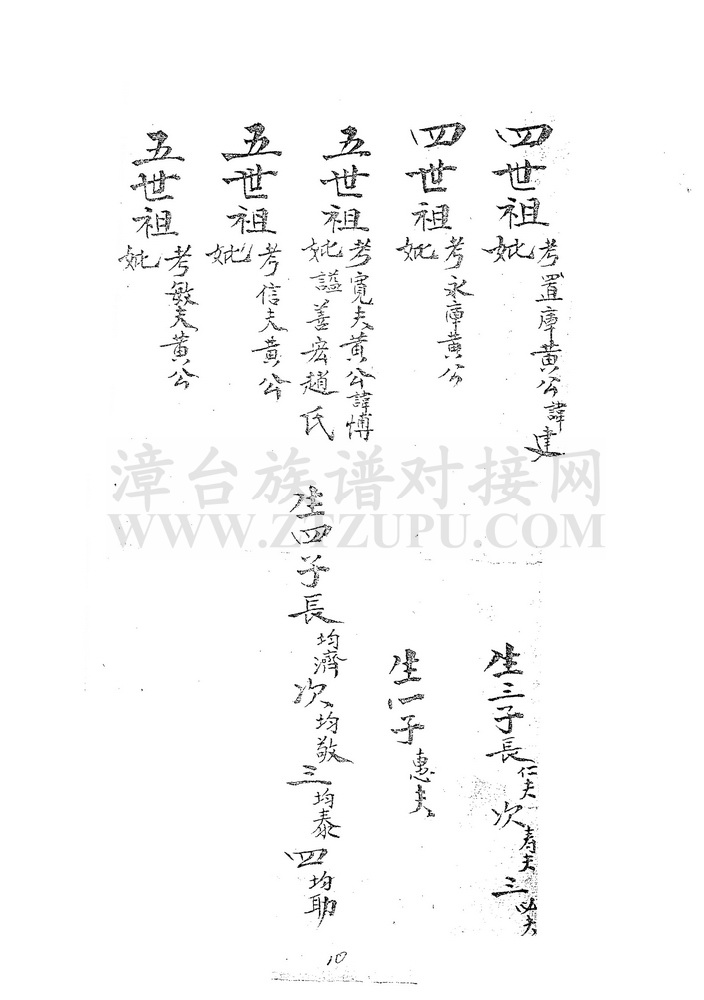 四世祖 考置庫黄公諱建
妣
生三子長仁夫次寿夫三必夫
四世祖 考永庫黄公
妣
生一子惠夫
五世祖 考寛夫黄公諱愽
妣謚善宏趙氏
生四子長均濟次均敬三均泰四均助
五世祖 考信夫黄公
妣
五世祖 考敏夫黄公
妣
漳台族谱对接网
WWW.ZTZUPU.COM
10